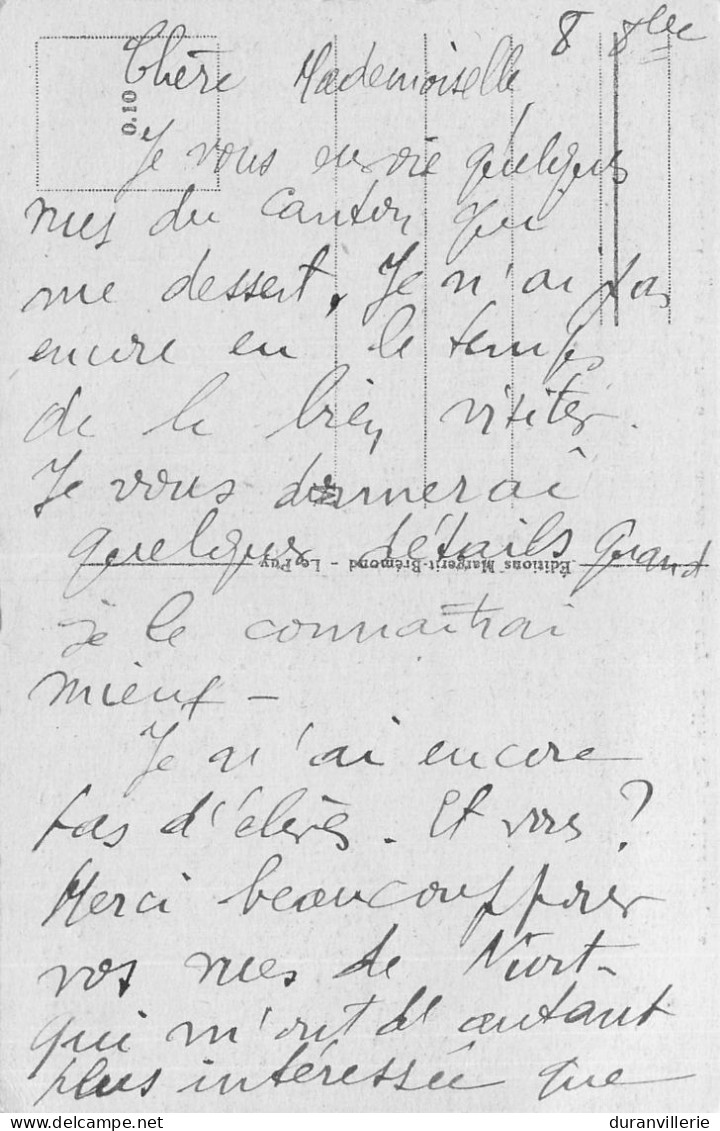 8 8bre
Chère Mademoiselle,
0.10
Je vous envoie quelques
vues du Canton qui
me dessert. Je n'ai pas
encore eu le temps
de le bien visiter.
Je vous donnerai
quelques détails quand
Éditions Margerit-Brémond - Le Puy
je le connaîtrai
mieux -
Je n'ai encore
pas d'élèves. Et vous ?
Merci beaucoup pour
vos vues de Niort
qui m'ont d'autant
plus intéressée que
duranvillerie